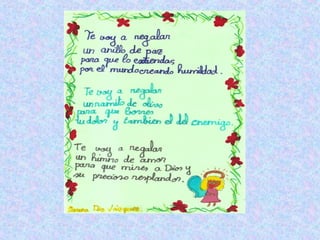 Te voy a regalar
un anillo de paz
para que lo extiendas,
por el mundo creando humildad.
Te voy a regalar
un ramito de olivo
para que borres
tu dolor y tambien el del enemigo.
Te voy a regalar
un himno de amor
para que mires a Dios y
su precioso resplandor.